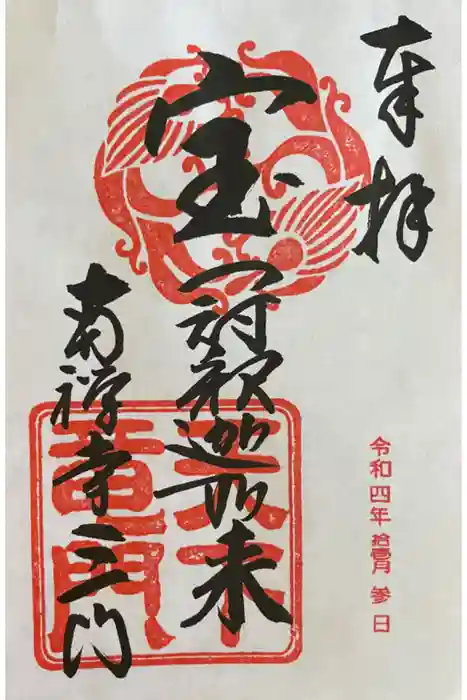 奉拝
宝冠釈迦如来
南禅寺三門
令和四年拾壱月参日